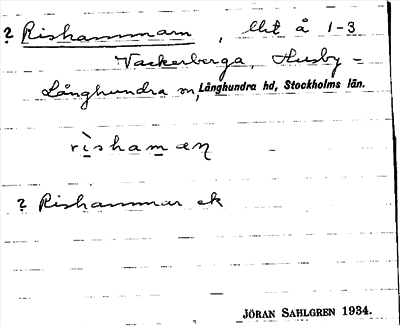 ? Rishammarn, Mt å 1-3
Vackerberga, Husby-
Långhundra sn, Långhundra hd, Stockholms län.
rìshamaṇ
? Rishammar ek
JÖRAN SAHLGREN 1934.